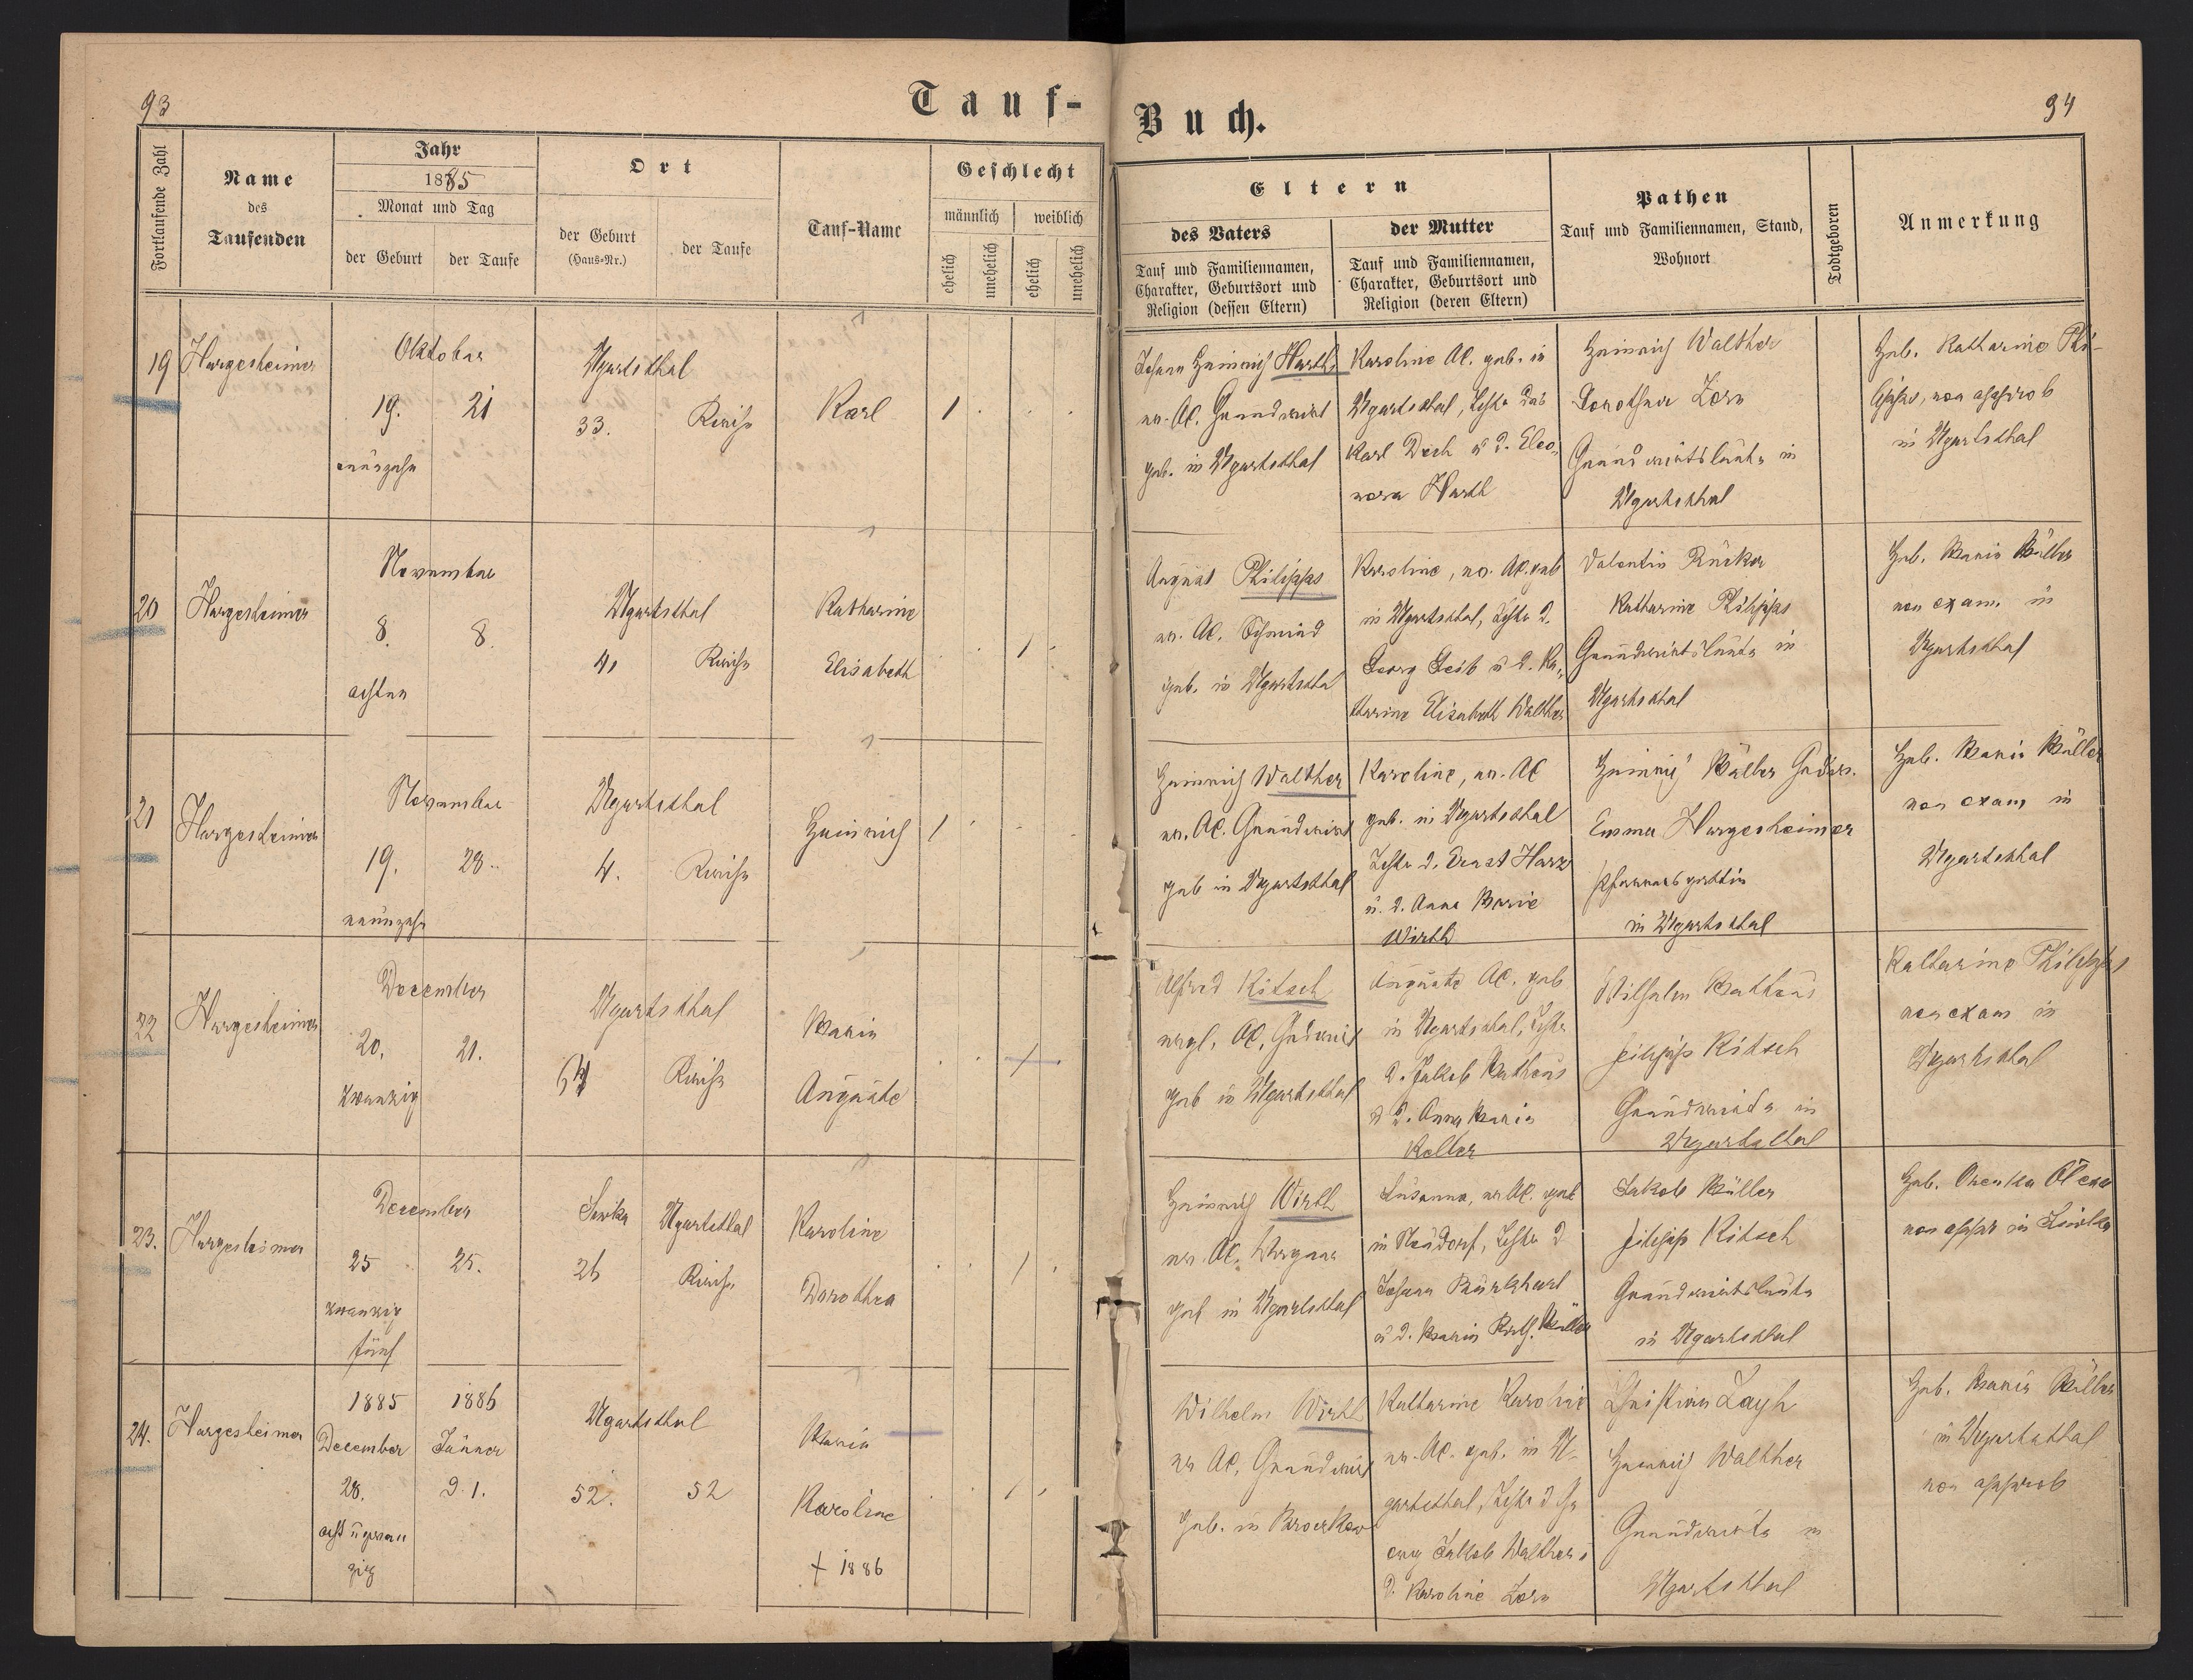 93
Tauf-
Buch.
94
Fortlaufende Zahl
Name
des
Taufenden
Jahr
1885
Monat und Tag
der Geburt
der Taufe
Ort
der Geburt
(Haus-Nr.)
der Taufe
Tauf-Name
Geschlecht
männlich
weiblich
ehelich
unehelich
ehelich
unehelich
Eltern
des Vaters
Tauf und Familiennamen,
Charakter, Geburtsort und
Religion (dessen Eltern)
der Mutter
Tauf und Familiennamen,
Charakter, Geburtsort und
Religion (deren Eltern)
Pathen
Tauf und Familiennamen, Stand,
Wohnort
Todtgeboren
Anmerkung
19
Hargesheimer
Oktober
19.
21
neunzehn
Ugartsthal
33.
Kirche
Karl
1
Johann Heinrich Harth
ev. AC. Grundwirt
geb. in Ugartsthal
Karoline AC. geb. in
Ugartsthal, Tochter des
Karl Dech u d. Eleo-
nora Harth
Heinrich Walther
Dorothea Zorn
Grundwirtsleute in
Ugartsthal
Heb. Katharine Phi-
lipps, non approb
in Ugartsthal
20
Hargesheimer
November
8.
8.
achten
Ugartsthal
41
Kirche
Katharine
Elisabeth
1
August Philipps
ev. AC. Schmied
geb. in Ugartsthal
Karoline, ev. AC. geb
in Ugartsthal, Tochter d.
Georg Leib u d. Ka-
tharine Elisabeth Walther
Valentin Rücker
Katharine Philipps
Grundwirtsleute in
Ugartsthal
Heb. Maria Müller
non exam. in
Ugartsthal
21
Hargesheimer
November
19.
28.
neunzehn
Ugartsthal
4.
Kirche
Heinrich
1
Heinrich Walther
ev. AC. Grundwirt
geb in Ugartsthal
Karoline, ev. AC
geb. in Ugartsthal
Tochter d. Ernst Harz
u. d. Anna Marie
Wirth
Heinrich Müller
Emma Hargesheimer
Pfarrersgattin
in Ugartsthal
Heb. Maria Müller
non exam in
Ugartsthal
22
Hargesheimer
December
20.
21.
zwanzig
Ugartsthal
64
Kirche
Maria
Auguste
1
Alfred Kitsch
evgl. AC. Grdwirt
geb in Ugartsthal
Auguste AC. geb
in Ugartsthal, Tochter
d. Jakob Mathäus
u d. Anna Maria
Koller
Wilhelm Mathäus
Filipp Kitsch
Grundwirte in
Ugartsthal
Katharine Philipps
non exam in
Ugartsthal
23.
Hargesheimer
December
25
25.
zwanzig
fünf
Siwka
26
Ugartsthal
Kirche
Karoline
Dorothea
1
Heinrich Wirth
ev. AC. Wagner
geb in Ugartsthal
Susanna, ev AC. geb
in Neudorf, Tochter d
Johann Burkhart
u d. Maria Kath. Müller
Jakob Müller
Filipp Kitsch
Grundwirtsleute
in Ugartsthal
non approb in Siwka
24.
Hargesheimer
1885
December
28.
acht u zwan
zig
1886
Jänner
d. 1.
Ugartsthal
52.
52
Maria
Karoline
+ 1886
1
Wilhelm Wirth
ev AC. Grundwirt
geb. in
Katharine Karoline
ev. AC. geb. in U-
gartsthal, Tochter d Ge
org Jakob Walther u
d. Karoline Zorn
Christian Layh
Heinrich Walther
Grundwirte in
Ugartsthal
Heb. Maria Müller
in Ugartsthal
non approb